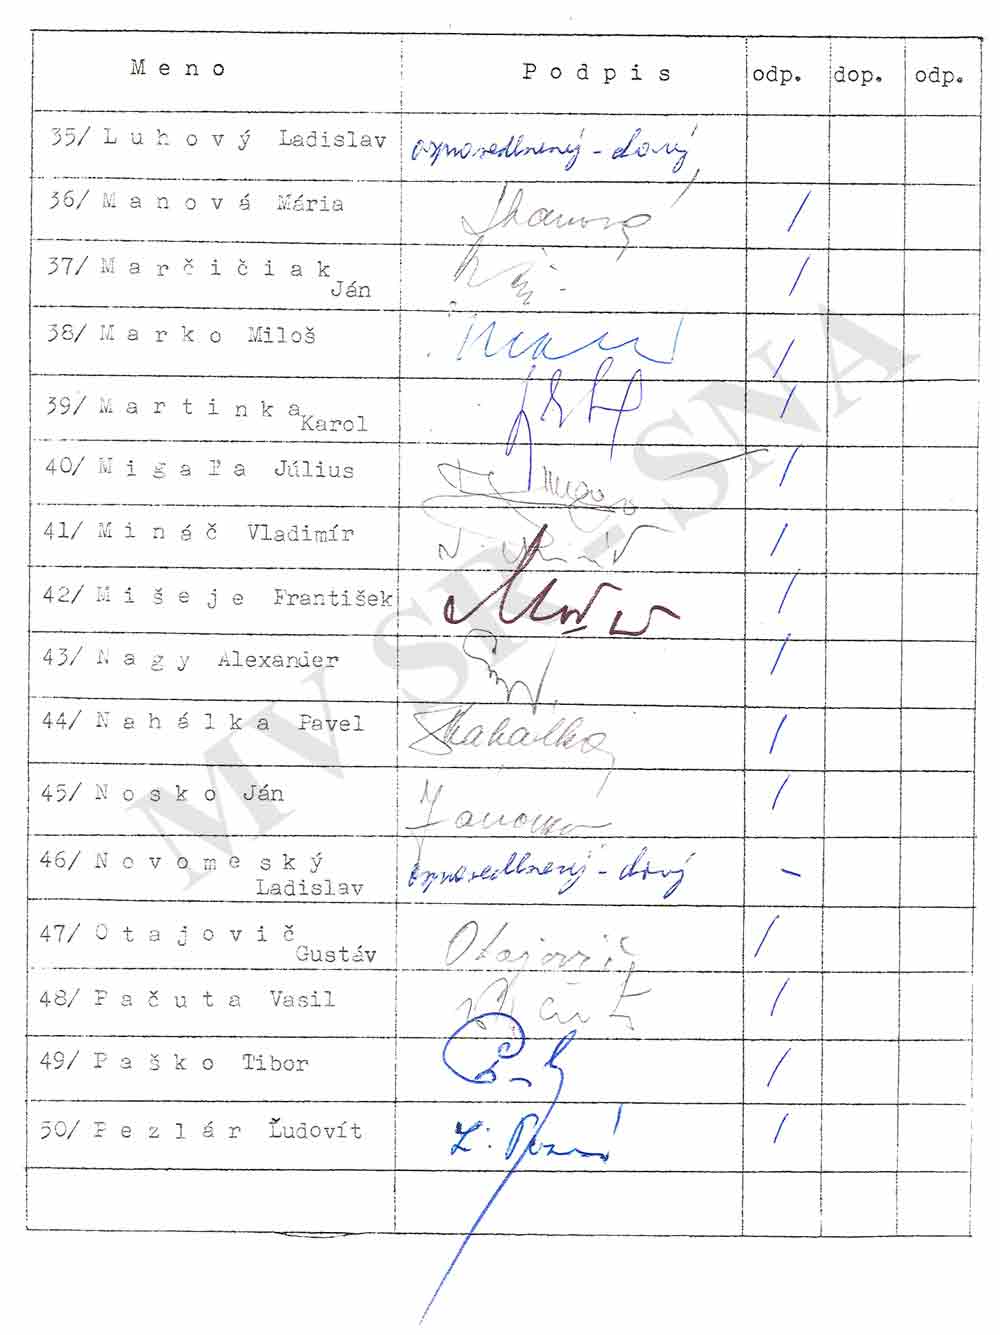 Meno Podpis odp. dop. odp.
35/ Luhový Ladislav ospravedlnený - dov.
36/ Manová Mária Manová
37/ Marčičiak
Ján
38/ Marko Miloš
39/ Martinka
Karol
40/ Migaľa Július
41/ Mináč Vladimír
42/ Mišeje František
43/ Nagy Alexander
44/ Nahálka Pavel Nahálka
45/ Nosko Ján
46/ Novomeský ospravedlnený -
Ladislav
47/ Otajovič Otajovič
Gustáv
48/ Pačuta Vasil
49/ Paško Tibor
50/ Pezlár Ľudovít
MV SR - SNA